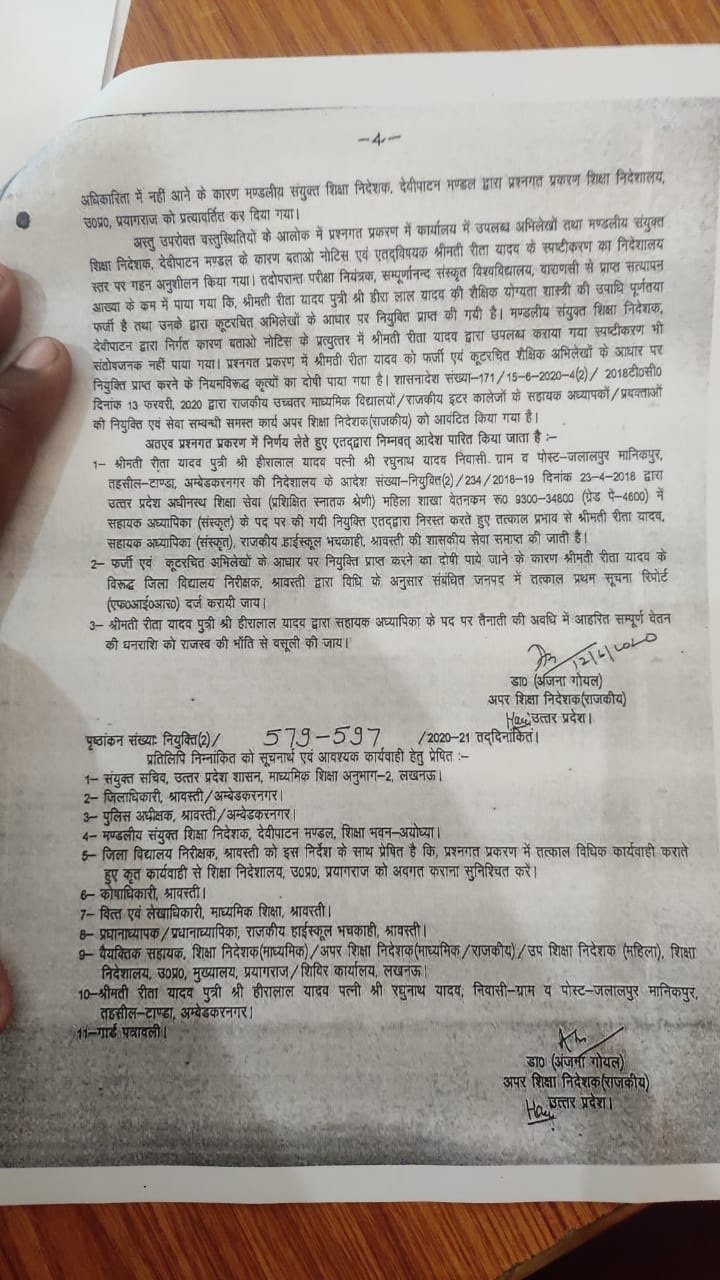 -4-
अधिकारिता में नहीं आने के कारण मण्डलीय संयुक्त शिक्षा निदेशक, देवीपाटन मण्डल द्वारा प्रश्नगत प्रकरण शिक्षा निदेशालय,
उ०प्र०, प्रयागराज को प्रत्यावर्तित कर दिया गया।
अस्तु उपरोक्त वस्तुस्थितियों के आलोक में प्रश्नगत प्रकरण में कार्यालय में उपलब्ध अभिलेखों तथा मण्डलीय संयुक्त
शिक्षा निदेशक, देवीपाटन मण्डल के कारण बताओ नोटिस एवं एतद्विषयक श्रीमती रीता यादव के स्पष्टीकरण का निदेशालय
स्तर पर गहन अनुशीलन किया गया। तदोपरान्त परीक्षा नियंत्रक, सम्पूर्णानन्द संस्कृत विश्वविद्यालय, वाराणसी से प्राप्त सत्यापन
आख्या के कम में पाया गया कि, श्रीमती रीता यादव पुत्री श्री हीरा लाल यादव की शैक्षिक योग्यता शास्त्री की उपाधि पूर्णतया
फर्जी है तथा उनके द्वारा कूटरचित अभिलेखों के आधार पर नियुक्ति प्राप्त की गयी है। मण्डलीय संयुक्त शिक्षा निदेशक,
देवीपाटन द्वारा निर्गत कारण बताओ नोटिस के प्रत्युत्तर में श्रीमती रीता यादव द्वारा उपलब्ध कराया गया स्पष्टीकरण भी
संतोषजनक नहीं पाया गया। प्रश्नगत प्रकरण में श्रीमती रीता यादव को फर्जी एवं कूटरचित शैक्षिक अभिलेखों के आधार पर
नियुक्ति प्राप्त करने के नियमविरूद्ध कृत्यों का दोषी पाया गया है। शासनादेश संख्या-171/15-6-2020-4(2)/ 2018टी०सी०
दिनांक 13 फरवरी, 2020 द्वारा राजकीय उच्चतर माध्यमिक विद्यालयों/राजकीय इटर कालेजों के सहायक अध्यापकों/प्रवक्ताओं
की नियुक्ति एवं सेवा सम्बन्धी समस्त कार्य अपर शिक्षा निदेशक(राजकीय) को आवंटित किया गया है।
अतएव प्रश्नगत प्रकरण में निर्णय लेते हुए एतद्द्वारा निम्नवत् आदेश पारित किया जाता है :-
1- श्रीमती रीता यादव पुत्री श्री हीरालाल यादव पत्नी श्री रघुनाथ यादव निवासी ग्राम व पोस्ट-जलालपुर मानिकपुर,
तहसील-टाण्डा, अम्वेडकरनगर की निदेशालय के आदेश संख्या-नियुक्ति(2)/234/2018-19 दिनांक 23-4-2018 द्वारा
उत्तर प्रदेश अधीनस्थ शिक्षा सेवा (प्रशिक्षित स्नातक श्रेणी) महिला शाखा वेतनकम रू0 9300-34800 (ग्रेड पे-4600) में
सहायक अध्यापिका (संस्कृत) के पद पर की गयी नियुक्ति एतद्द्वारा निरस्त करते हुए तत्काल प्रभाव से श्रीमती रीता यादव,
सहायक अध्यापिका (संस्कृत), राजकीय हाईस्कूल भचकाही, श्रावस्ती की शासकीय सेवा समाप्त की जाती है।
2- फर्जी एवं कूटरचित अभिलेखों के आधार पर नियुक्ति प्राप्त करने का दोषी पाये जाने के कारण श्रीमती रीता यादव के
विरूद्ध जिला विद्यालय निरीक्षक, श्रावस्ती द्वारा विधि के अनुसार संबंधित जनपद में तत्काल प्रथम सूचना रिपोर्ट
(एफ०आई०आर०) दर्ज करायी जाय।
3- श्रीमती रीता यादव पुत्री श्री हीरालाल यादव द्वारा सहायक अध्यापिका के पद पर तैनाती की अवधि में आहरित सम्पूर्ण वेतन
की धनराशि को राजस्व की भाँति से वसूली की जाय।
12/6/2020
डा० (अंजना गोयल)
अपर शिक्षा निदेशक(राजकीय)
उत्तर प्रदेश।
पृष्ठांकन संख्याः नियुक्ति(2)/ 579-597 /2020-21 तद्दिनांकित।
प्रतिलिपि निम्नांकित को सूचनार्थ एवं आवश्यक कार्यवाही हेतु प्रेषित :-
1- संयुक्त सचिव, उत्तर प्रदेश शासन, माध्यमिक शिक्षा अनुभाग-2, लखनऊ।
2- जिलाधिकारी, श्रावस्ती/अम्वेडकरनगर।
3- पुलिस अधीक्षक, श्रावस्ती/अम्वेडकरनगर।
4- मण्डलीय संयुक्त शिक्षा निदेशक, देवीपाटन मण्डल, शिक्षा भवन-अयोध्या।
5- जिला विद्यालय निरीक्षक, श्रावस्ती को इस निर्देश के साथ प्रेषित है कि, प्रश्नगत प्रकरण में तत्काल विधिक कार्यवाही कराते
हुए कृत कार्यवाही से शिक्षा निदेशालय, उ०प्र०, प्रयागराज को अवगत कराना सुनिश्चित करें।
6- कोषाधिकारी, श्रावस्ती।
7- वित्त एवं लेखाधिकारी, माध्यमिक शिक्षा, श्रावस्ती।
8- प्रधानाध्यापक/प्रधानाध्यापिका, राजकीय हाईस्कूल भचकाही, श्रावस्ती।
9- वैयक्तिक सहायक, शिक्षा निदेशक(माध्यमिक)/अपर शिक्षा निदेशक(माध्यमिक/राजकीय)/उप शिक्षा निदेशक (महिला), शिक्षा
निदेशालय, उ०प्र०, मुख्यालय, प्रयागराज/शिविर कार्यालय, लखनऊ।
10-श्रीमती रीता यादव पुत्री श्री हीरालाल यादव पत्नी श्री रघुनाथ यादव, निवासी-ग्राम व पोस्ट-जलालपुर मानिकपुर,
तहसील-टाण्डा, अम्वेडकरनगर।
11-गार्ड पत्रावली।
डा० (अंजना गोयल)
अपर शिक्षा निदेशक(राजकीय)
उत्तर प्रदेश।